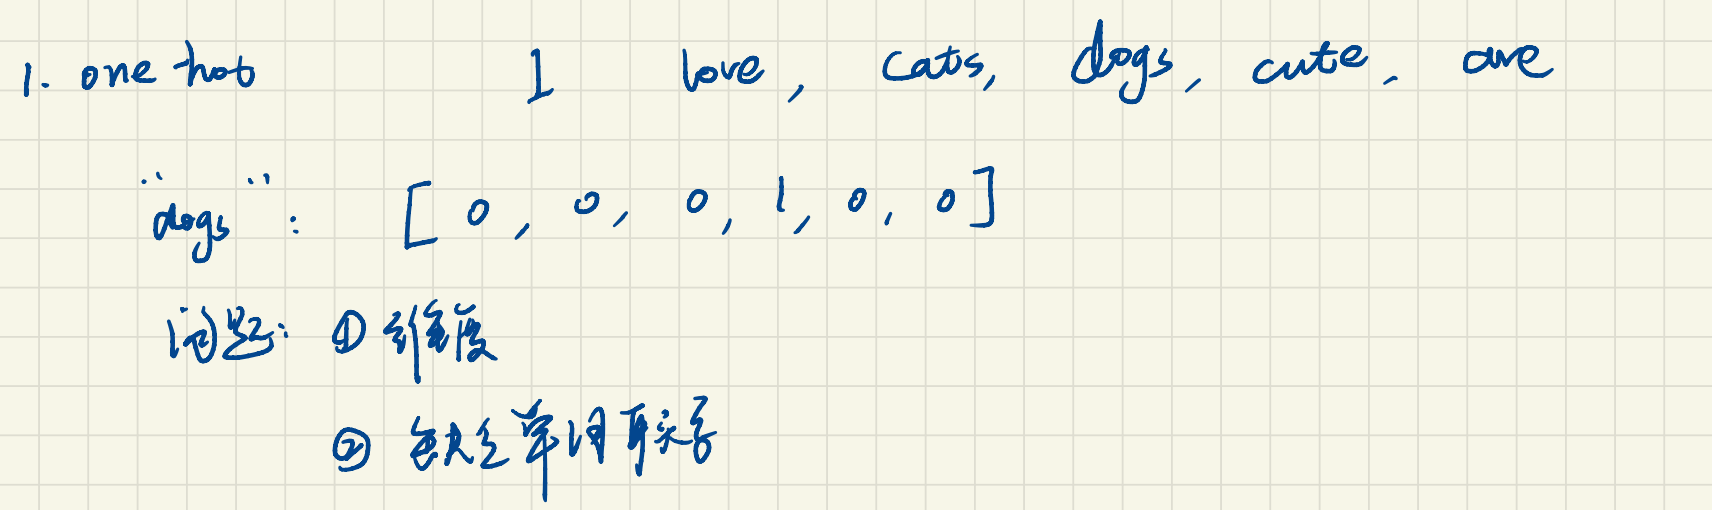 1. one-hot I love, cats, dogs, cute, are
"dogs": [0, 0, 0, 1, 0, 0]
问题: ① 维度
② 缺乏单词联系